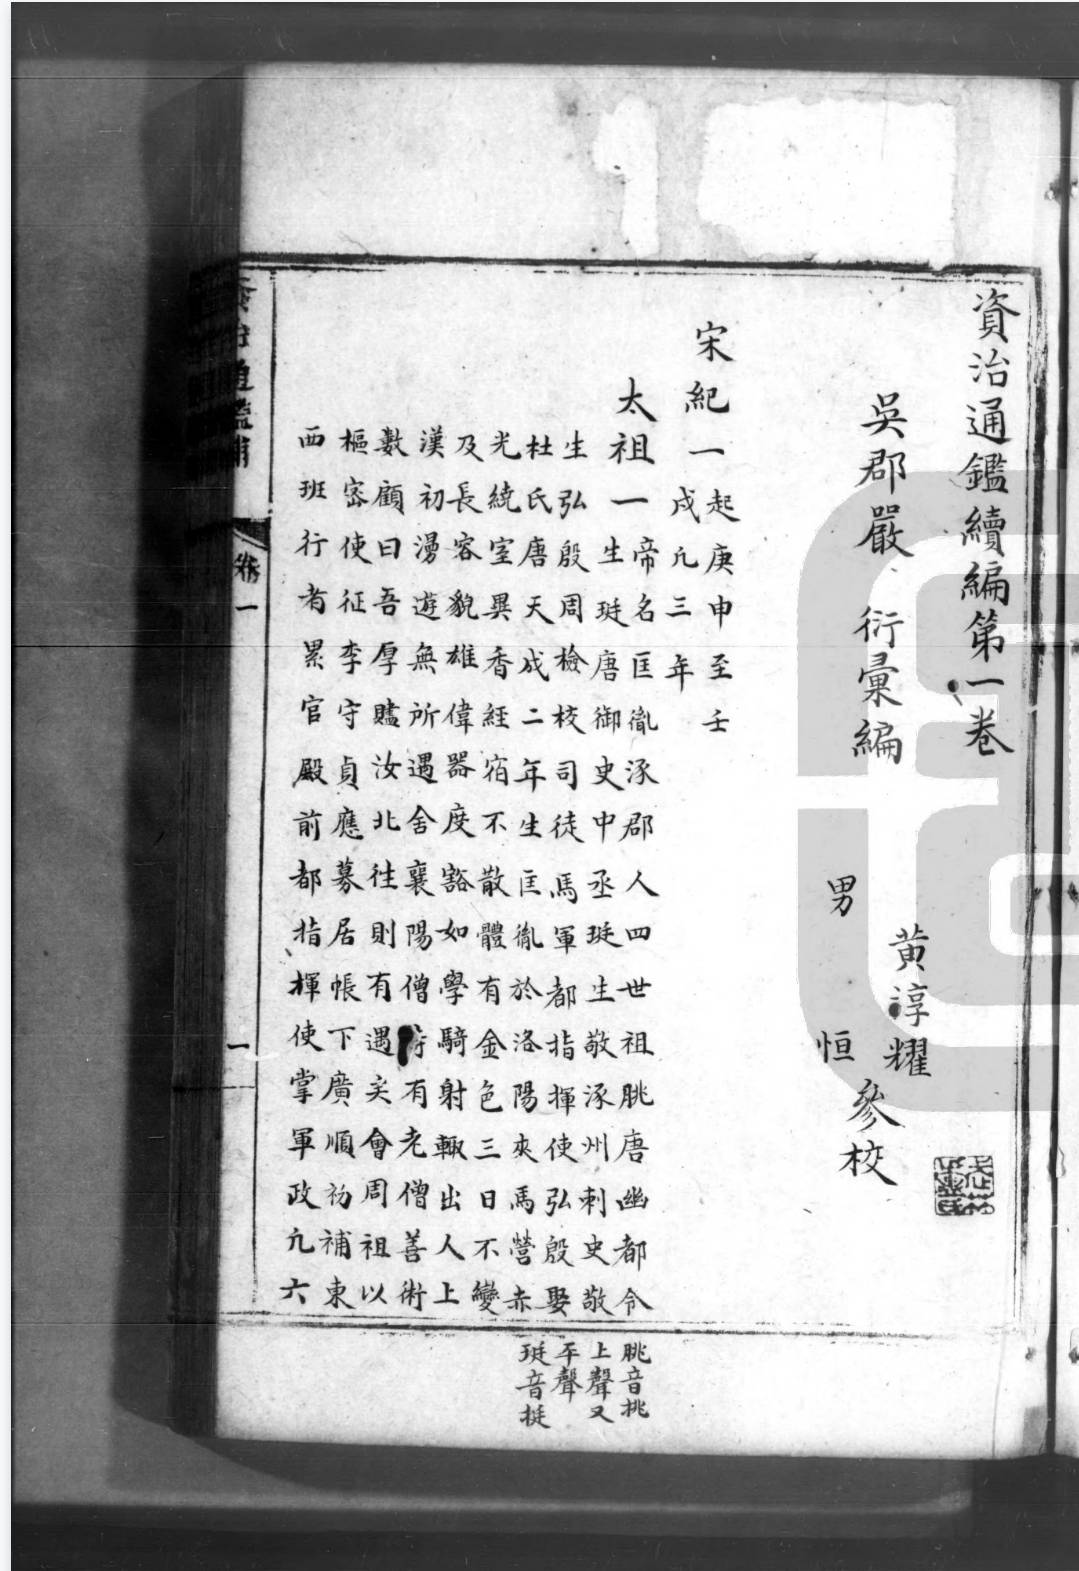 資治通鑑續編第一卷
吳郡嚴 衍彙編
黃淳耀
男 恒
參校
宋紀一
起庚申至壬
戌凢三年
太祖一
帝名匡胤涿郡人四世祖脁唐幽都令
生珽唐御史中丞珽生敬涿州刺史敬
生弘殷周檢校司徒馬軍都指揮使弘殷娶
杜氏唐天成二年生匡胤於洛陽夾馬營赤
光繞室異香經宿不散體有金色三日不變
及長容貌雄偉器度豁如學騎射輙出人上
漢初漫遊無所遇舍襄陽僧寺有老僧善術
數顧曰吾厚贐汝北往則有遇矣會周祖以
樞密使征李守貞應募居帳下廣順初補東
西班行者累官殿前都指揮使掌軍政凢六
脁音挑
上聲又
平聲
珽音挺
資治通鑑補
卷一
一